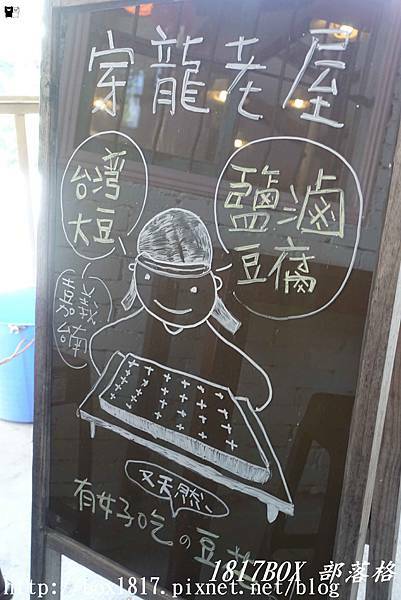 穿龍老屋
台灣
大豆
鹽滷
豆腐
嘉義
台南
又天然、
有好吃の豆花
1817BOX 部落格
http://box1817.pixnet.net/blog